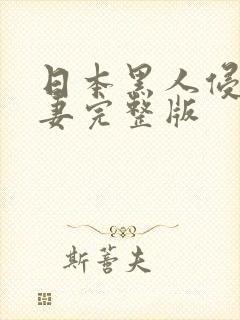 日本黑人侵
妻完整版
斯蕾夫